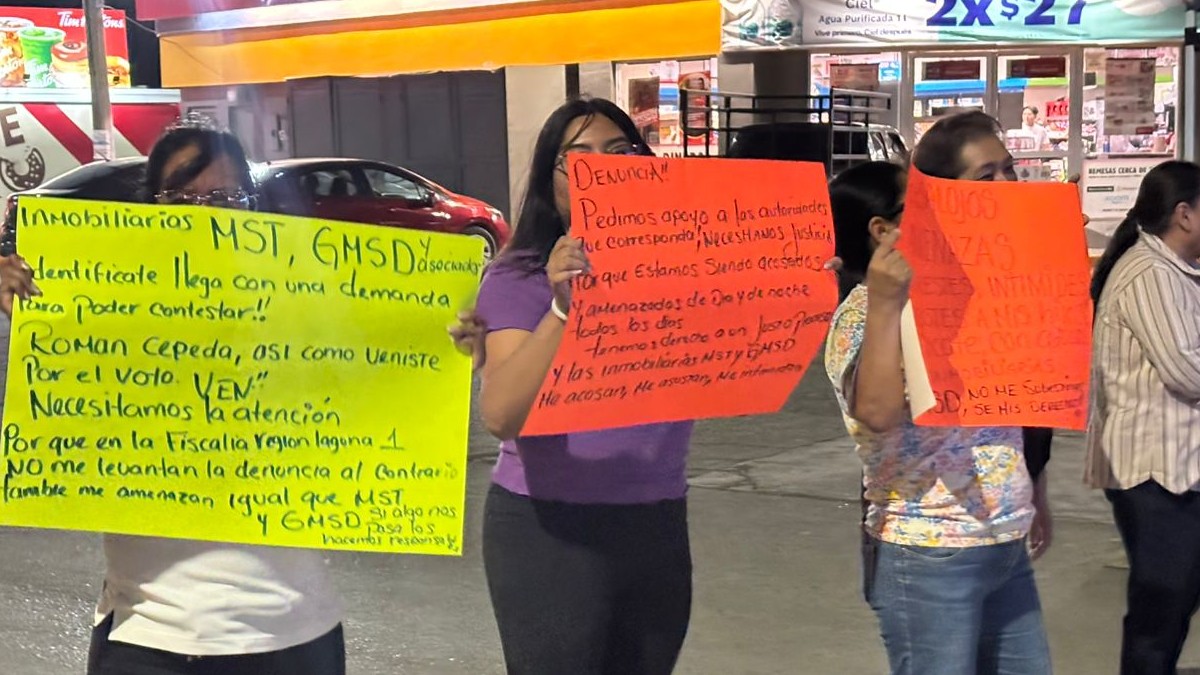 Tim Hortons
Ciel
Agua Purificada 1 l
2x$27
REMESAS CERCA DE
INMOBILIARIAS MST, GMSD y asociados
identificate llega con una demanda
Para Poder contestar!!
ROMAN Cepeda, así como veniste
Por el voto. VEN"
Necesitamos la atención
Por que en la Fiscalia region laguna 1
NO me levantan la denuncia al contrario
tambie me amenazan igual que MST
y GMSD si algo nos
pasa los
hacemos responsable
DENUNCIA"
Pedimos apoyo a las autoridades
que corresponda", NeceSitaNOS Justicia
Porque Estamos Siendo acosados
y amenazados de Dia y de noche
todos los dias
tenemos derecho a un Justo Proceso
y las inmobiliarias MST y GMSD
Me acosan, Me asustan, Me intimidan
ALOJOS
ENAZAS
INTIMIDE
A MIS
NO ME
SD, SE MIS DERECHO